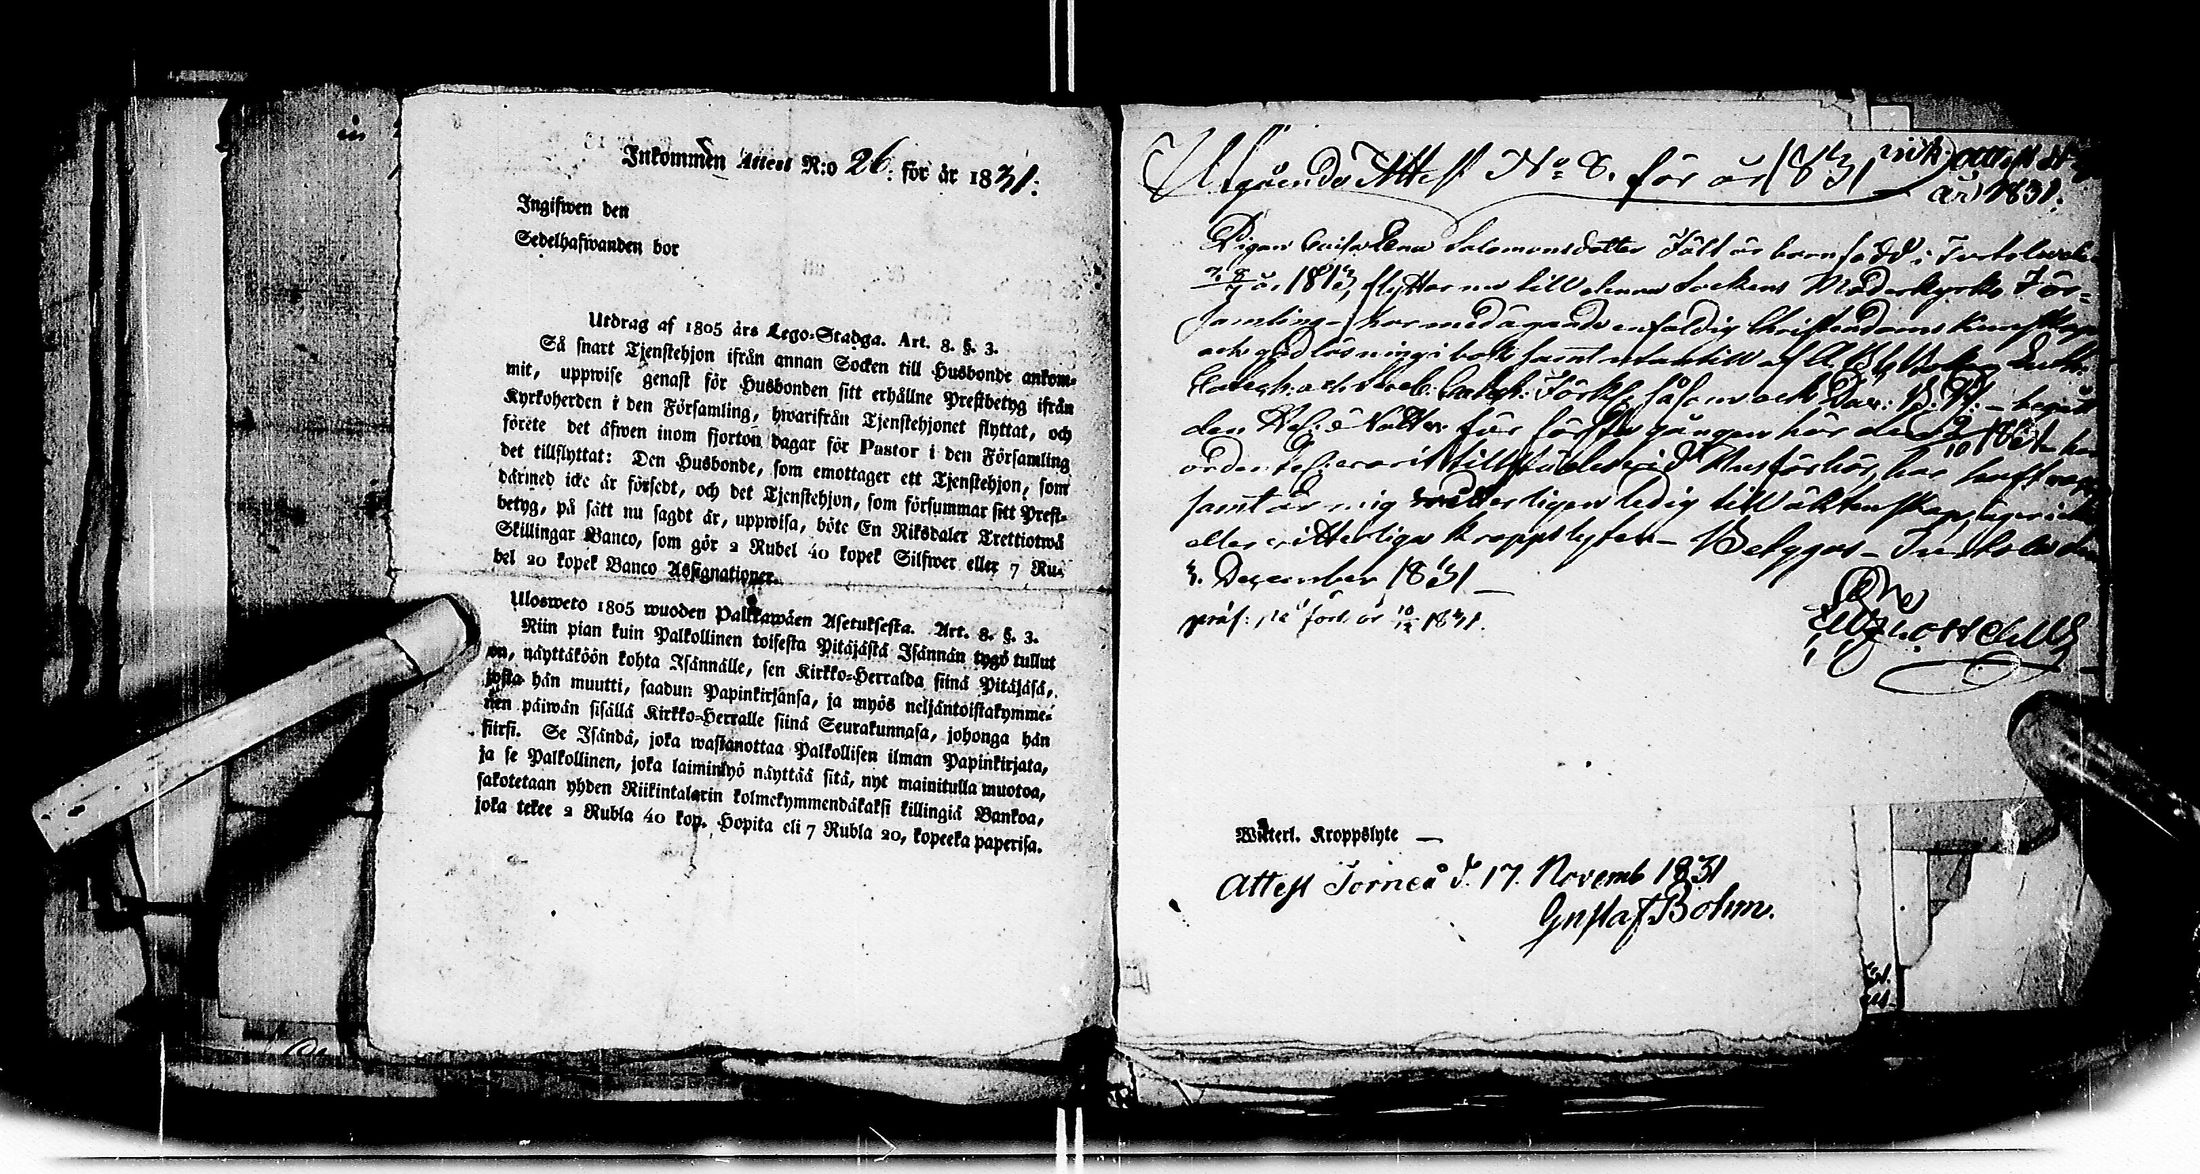 Inkommen Attest N:o 26. för år 1831.
Ingifwen den
Sedelhafwanden bor
Utdrag af 1805 års Lego-Stadga. Art. 8. §. 3.
Så snart Tjenstehjon ifrån annan Socken till Husbonde ankom-
mit, uppwise genast för Husbonden sitt erhållne Prestbetyg ifrån
Kyrkoherden i den Församling, hwarifrån Tjenstehjonet flyttat, och
förete det äfwen inom fjorton dagar för Pastor i den Församling
det tillflyttat: Den Husbonde, som emottager ett Tjenstehjon, som
därmed icke är försedt, och det Tjenstehjon, som försummar sitt Prest-
betyg, på sätt nu sagdt är, uppwisa, böte En Riksdaler Trettiotwå
Skillingar Banco, som gör 2 Rubel 40 kopek Silfwer eller 7 Ru-
bel 20 kopek Banco Assignationer.
Ulosweto 1805 wuoden Palkkawäen Asetuksesta. Art. 8. §. 3.
Niin pian kuin Palkollinen toisesta Pitäjästä Isännän tygö tullut
on, näyttäköön kohta Isännälle, sen Kirkko-Herralda siinä Pitäjäsä,
josta hän muutti, saadun Papinkirjansa, ja myös neljäntoistakymme-
nen päiwän sisällä Kirkko-Herralle siinä Seurakunnasa, johonga hän
siirsi. Se Isändä, joka wastanottaa Palkollisen ilman Papinkirjata,
ja se Palkollinen, joka laiminlyö näyttää sitä, nyt mainitulla muotoa,
sakotetaan yhden Riikintalarin kolmekymmendäkaksi killingiä Bankoa,
joka tekee 2 Rubla 40 kop. Hopita eli 7 Rubla 20, kopeeka paperisa.
Utgående Attest No 8. för år 1831
år 1831.
Pigan Caisa Lena Salomonsdotter Fält är barnfödd i
år 1813, flyttar nu till denna Sockens Moderkyrko För-
samling har medägande enfaldig Christendoms Kunskap
och god läsning i bok samt utantill af A. B.
Catech: och Förkl: såsom ock Dav: B. Ps: begått
den H. H. Nattv. för första gången här den 1831
tillstädes vid Husförhör, har haft
samt är mig ledig till äktenskap,
eller witterliga kroppslyten Betygas
3. December 1831
1831.
Witterl. Kroppslyte —
Attest Torneå d. 17. Novemb 1831
Gustaf Bohm.